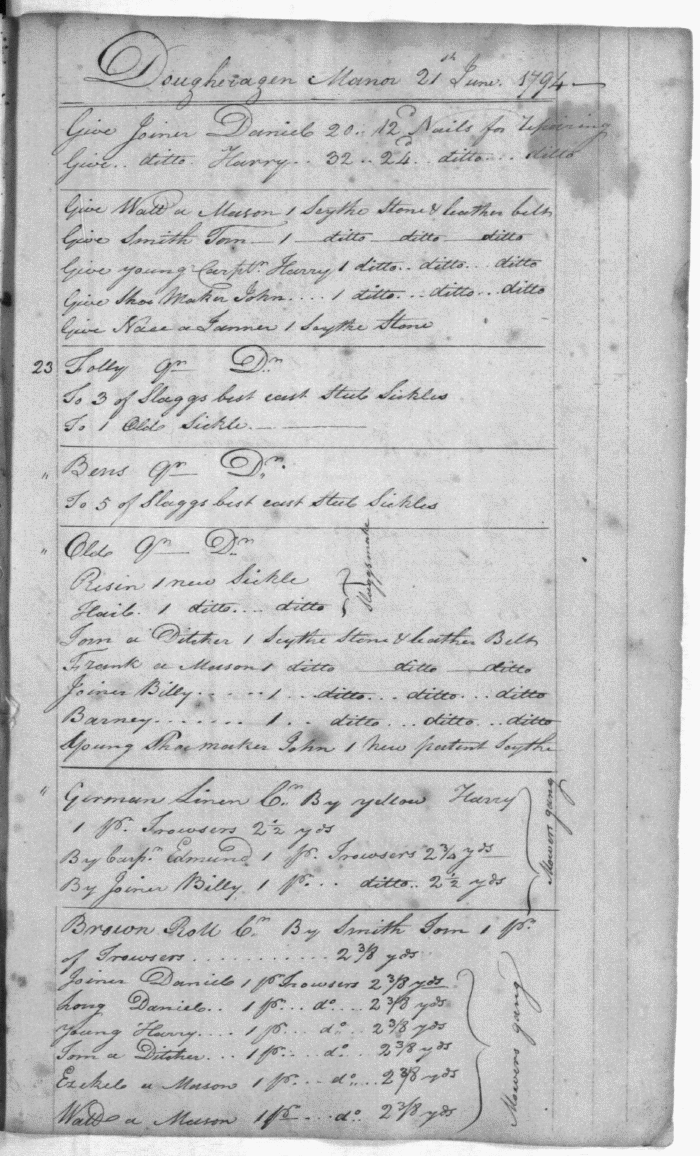 Dougheragen Manor 21st June. 1794
Give Joiner Daniel 20.. 12d Nails for repairing
Give.. ditto Harry.. 32.. 24d.. ditto... ditto
Give Watt a Mason 1 Scythe Stone & leather belt
Give Smith Tom 1 ditto ditto ditto
Give young Carptr Harry 1 ditto.. ditto... ditto
Give Shoe Maker John.... 1 ditto.. ditto... ditto
Give Nace a Tanner 1 Scythe Stone
23 Folly Qr Dr
To 3 of Slaggs best cast Steel Sickles
To 1 Old Sickle
" Bens Qr Dr
To 5 of Slaggs best cast Steel Sickles
" Old Qr Dr
Risin 1 new Sickle
1 ditto.... ditto
Slaggs make
Tom a Ditcher 1 Scythe Stone & leather Belt
Frank a Mason 1 ditto ditto ditto
Joiner Billy..... 1... ditto... ditto... ditto
Barney....... 1.. ditto... ditto... ditto
Young Shoemaker John 1 New patent Scythe
" German Linen Cr By yellow Harry
1 pr. Trowsers 2 1/2 yds
By Carpr Edmund 1 pr. Trowsers 2 3/4 yds
By Joiner Billy 1 pr... ditto.. 2 1/2 yds
Mowers gang
Brown Roll Cr By Smith Tom 1 pr.
of Trowsers........... 2 3/8 yds
Joiner Daniel 1 pr Trowsers 2 3/8 yds
Long Daniel.. 1 pr... do... 2 3/8 yds
Young Harry.... 1 pr... do.. 2 3/8 yds
Tom a Ditcher... 1 pr... do.. 2 3/8 yds
Ezekel a Mason 1 pr... do... 2 3/8 yds
Watt a Mason 1 pr... do. 2 3/8 yds
Mowers gang